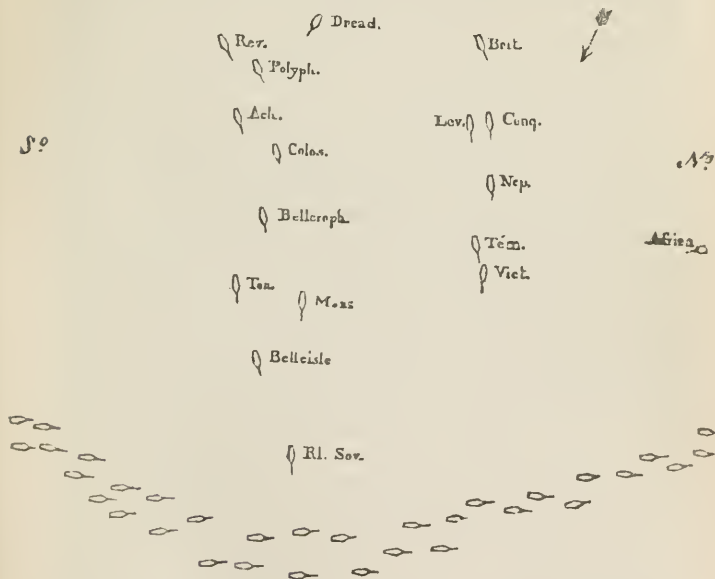 Dread.
Rev.
Brit.
Polyph.
Ach.
Lev.
Conq.
Colos.
So
Nep.
Belleroph.
Tém.
Africa
Vict.
Ton.
Mars
Belleisle
Rl. Sov.